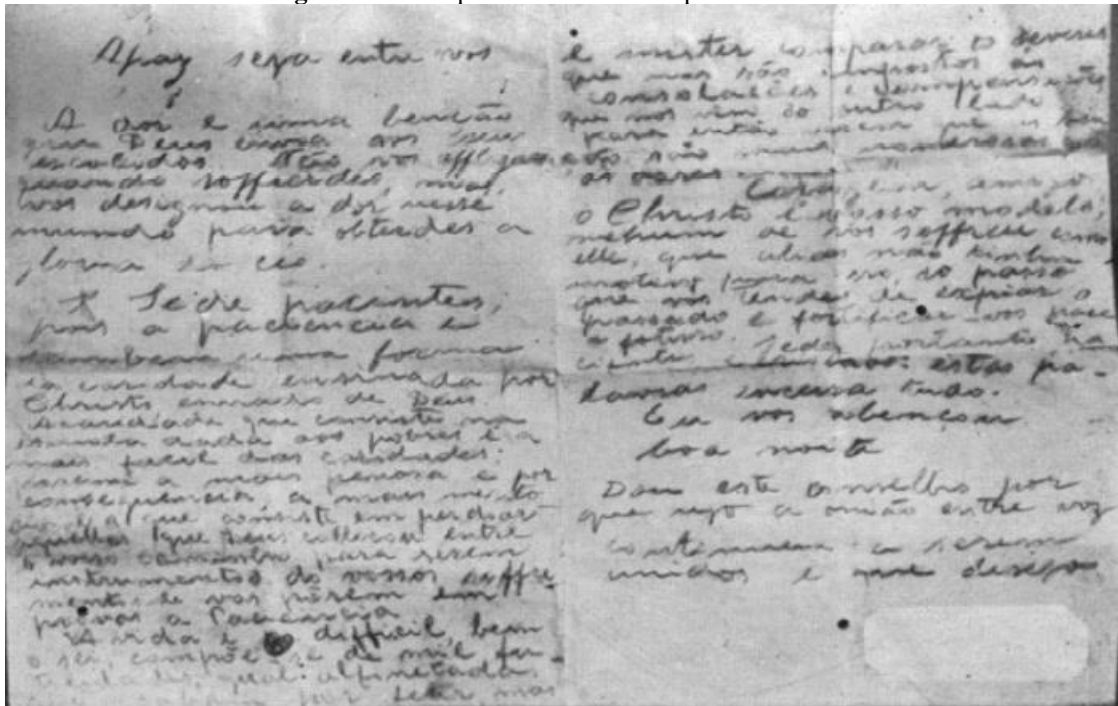 A paz seja entre vos
A dor é uma benção
que Deus envia aos seus
escolhidos. Não vos afflijaes
quando soffrerdes, mas
vos designou a dor nesse
mundo para obterdes a
gloria no ceo.
Sede pacientes,
pois a paciencia e
tambem uma forma
da caridade ensinada por
Christo enviado de Deus
A caridade que consiste na
esmola dada aos pobres é a
mais facil das caridades.
a mais penosa e por
consequencia a mais
a que consiste em perdoar
aquelles que Deus collocou entre
o vosso caminho para serem
instrumentos do vossos soffri-
mentos e vos pôrem em
provas a Paciencia
A vida é difficil, bem
o sei, compõe-se de mil
alfinetadas
por mas
é mister comparar os deveres
que nos são impostos às
consolações e compensações
que nos vem do outro lado
para então
são mais
as
Coragem, amigo
o Christo é vosso modelo,
nenhum de nós soffreu como
elle, que alias não tinha
motivo para so, ao passo
que vos tendes de expiar o
passado e fortificar-vos para
o futuro. Sede portanto pa-
ciente estas pa-
lavras encerra tudo.
Eu vos abençou
boa noite
Dou este conselho por
que vejo a união entre voz
continuem a serem
unidos é que desejo